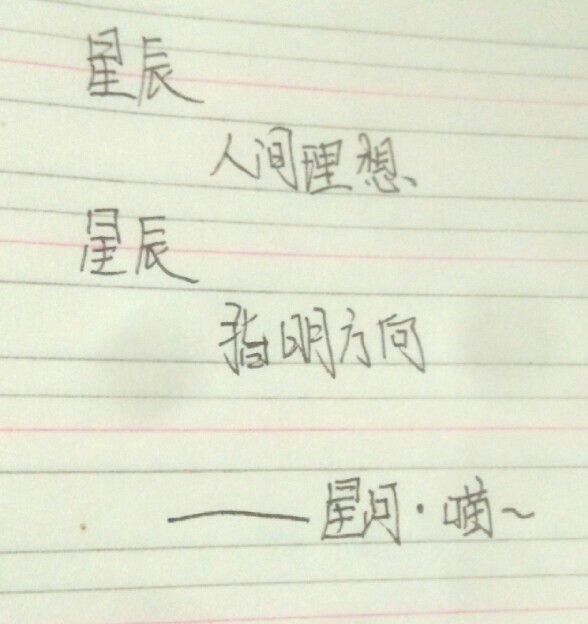 星辰
人间理想
星辰
指明方向
——星河·喵~